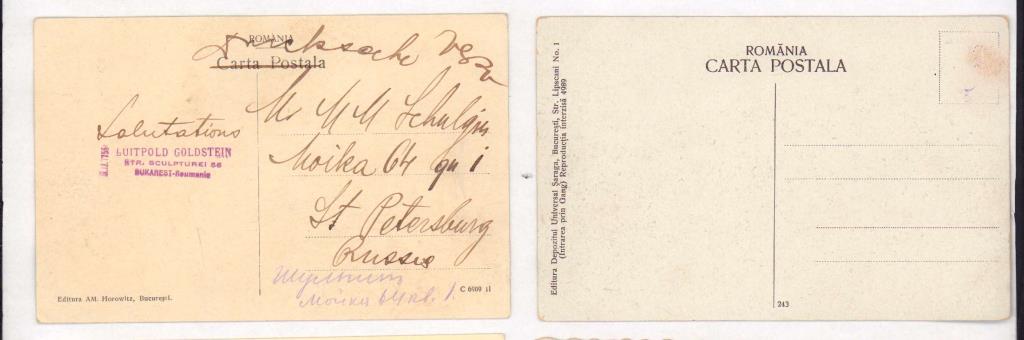 ROMÂNIA
Drucksache
Carta Postala
Mr M M Schulgin
Moika 64 qu 1
St Petersburg
Russie
Salutations
LUITPOLD GOLDSTEIN
STR. SCULPTUREI 56
BUKAREST-Roumanie
Шульгину
Мойка 64 кв. 1.
Editura AM. Horowitz, Bucureşti.
C 6909 11
Editura Depozitul Universal Şaraga, Bucureşti, Str. Lipscani No. 1
(Intrarea prin Gang) Reproducţia interzisă 4989
ROMÂNIA
CARTA POSTALA
243